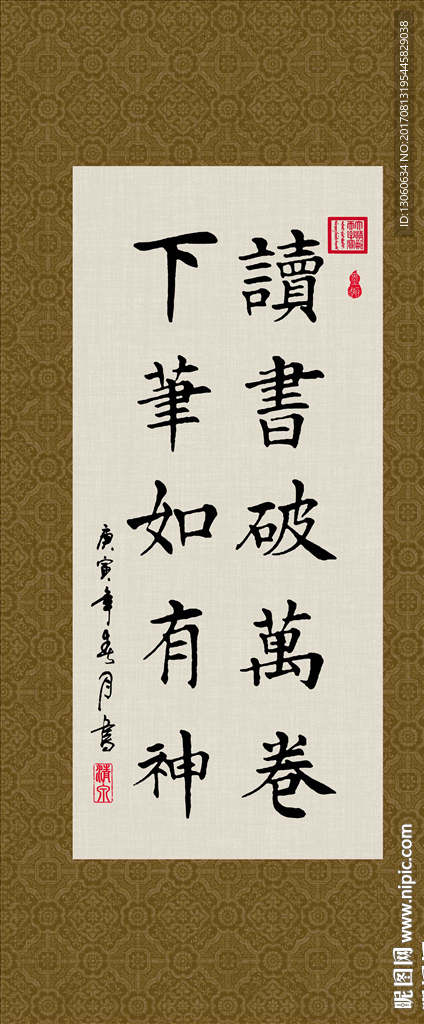 讀書破萬卷
下筆如有神
庚寅年春月書
清泉
ID:13060634 NO:20170813195445829038
昵图网 www.nipic.com